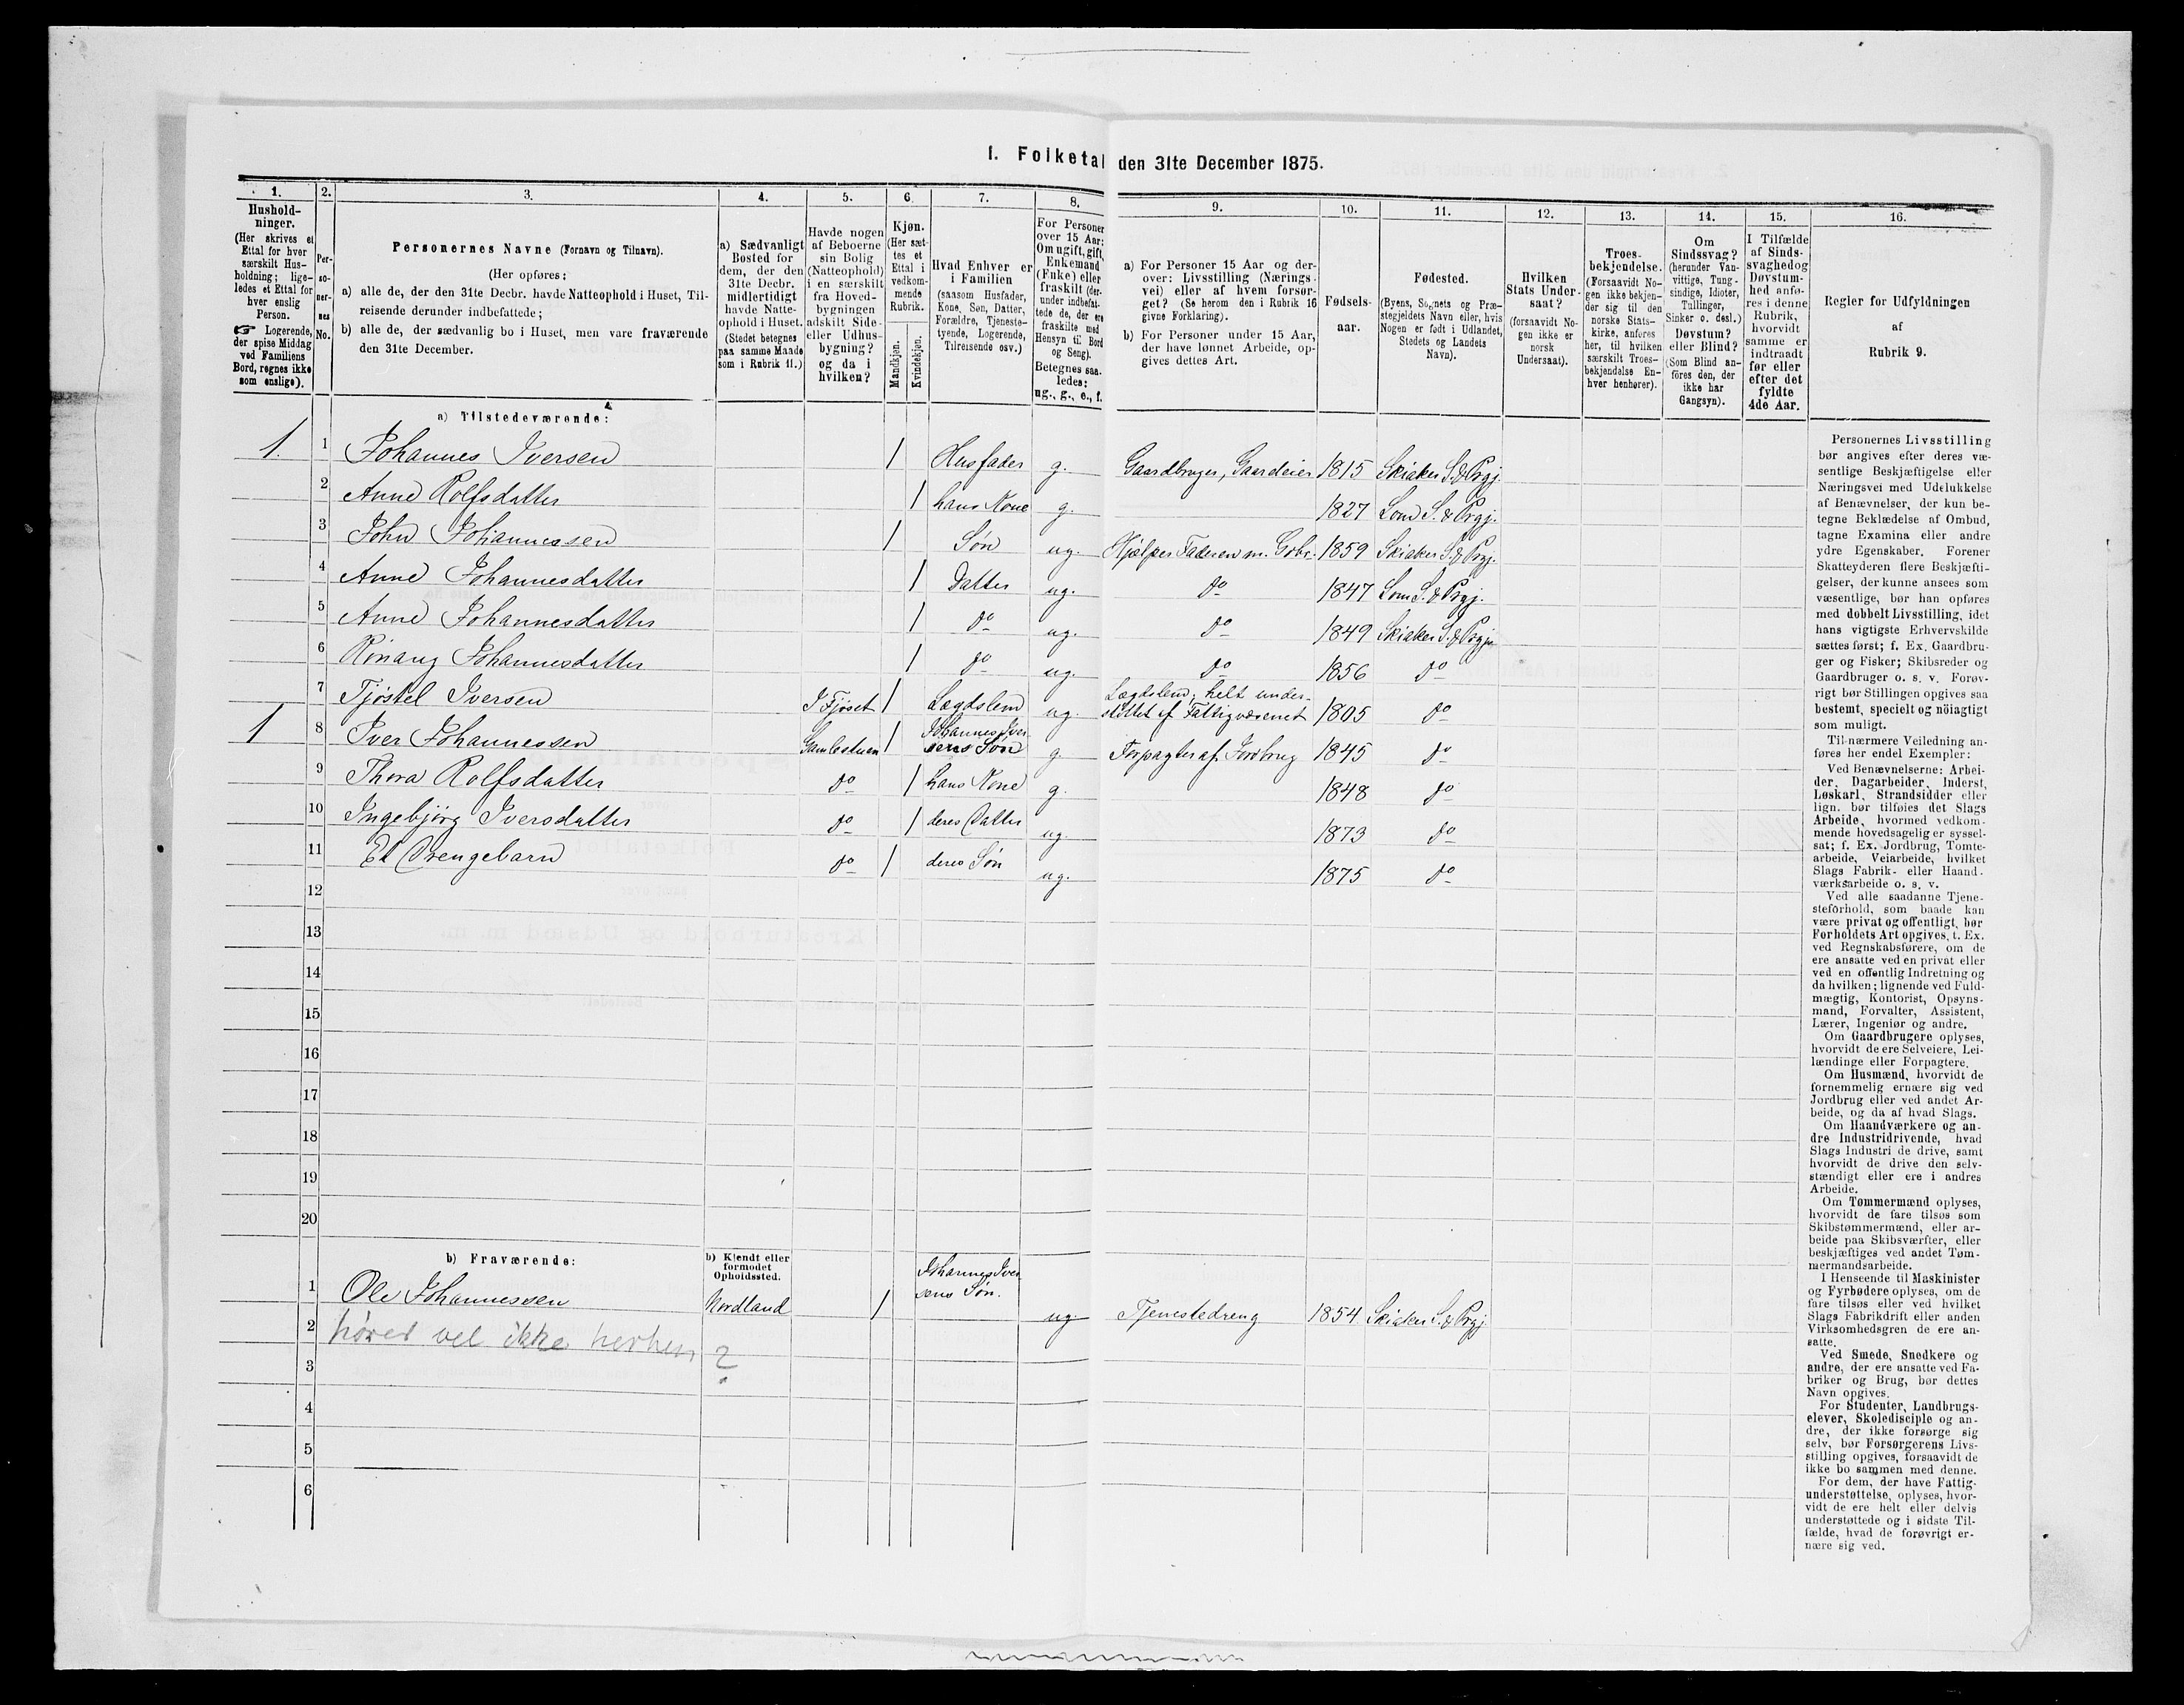 I. Folketal den 31te December 1875.
1. 2. 3. 4. 5. 6. 7. 8. 9. 10. 11. 12. 13. 14. 15. 16.
Hushold-
ninger.
(Her skrives et
Ettal for hver
særskilt Hus-
holdning; lige-
ledes et Ettal for
hver enslig
Person.
☞ Logerende,
der spise Middag
ved Familiens
Bord, regnes ikke
som enslige).
Per-
so-
ner-
nes
No.
Personernes Navne (Fornavn og Tilnavn).
(Her opføres:
a) alle de, der den 31te Decbr. havde Natteophold i Huset, Til-
reisende derunder indbefattede;
b) alle de, der sædvanlig bo i Huset, men vare fraværende
den 31te December.
a) Sædvanligt
Bosted for
dem, der den
31te Decbr.
midlertidigt
havde Natte-
ophold i Huset.
(Stedet betegnes
paa samme Maade
som i Rubrik 11.)
Havde nogen
af Beboerne
sin Bolig
(Natteophold)
i en særskilt
fra Hoved-
bygningen
adskilt Side-
eller Udhus-
bygning?
og da i
hvilken?
Kjøn.
(Her sæt-
tes et
Ettal i
vedkom-
mende
Rubrik.
Mandkjøn.
Kvindekjøn.
Hvad Enhver er
i Familien
(saasom Husfader,
Kone, Søn, Datter,
Forældre, Tjeneste-
tyende, Logerende,
Tilreisende osv.)
For Personer
over 15 Aar:
Om ugift, gift,
Enkemand
(Enke) eller
fraskilt (der-
under indbefat-
tede de, der ere
fraskilte med
Hensyn til Bord
og Seng).
Betegnes saa-
ledes:
ug., g., e., f.
a) For Personer 15 Aar og der-
over: Livsstilling (Nærings-
vei) eller af hvem forsør-
get? (Se herom den i Rubrik 16
givne Forklaring).
b) For Personer under 15 Aar,
der have lønnet Arbeide, op-
gives dettes Art.
Fødsels-
aar.
Fødested.
(Byens, Sognets og Præ-
stegjeldets Navn eller, hvis
Nogen er født i Udlandet,
Stedets og Landets
Navn).
Hvilken
Stats Under-
saat?
(forsaavidt No-
gen ikke er
norsk
Undersaat).
Troes-
bekjendelse.
(Forsaavidt No-
gen ikke bekjen-
der sig til den
norske Stats-
kirke, anføres
her, til hvilken
særskilt Troes-
bekjendelse En-
hver henhører).
Om
Sindssvag?
(herunder Van-
vittige, Tung-
sindige, Idioter,
Tullinger,
Sinker o. desl.)
Døvstum?
eller Blind?
(Som Blind an-
føres den, der
ikke har
Gangsyn).
I Tilfælde
af Sinds-
svaghed og
Døvstum-
hed anfø-
res i denne
Rubrik,
hvorvidt
samme er
indtraadt
før eller
efter det
fyldte
4de Aar.
Regler for Udfyldningen
af
Rubrik 9.
a) Tilstedeværende:
1 1 Johannes Iversen 1 Husfader g. Gaardbruger, Gaardeier 1815 Skiaker S. & Prgj.
2 Anne Rolfsdatter 1 hans Kone g. 1827 Lom S. & Prgj.
3 John Johannessen 1 Søn ug. Hjælper Faderen m. Gdbr. 1859 Skiaker S. & Prgj.
4 Anne Johannesdatter 1 Datter ug. do 1847 Lom S. & Prgj.
5 Anne Johannesdatter 1 do ug. do 1849 Skiaker S. & Prgj.
6 Rönaug Johannesdatter 1 do ug. do 1856 do
7 Tjöstel Iversen I Fjöset 1 Lægdslem ug. Lægdslem; helt under-
støttet af Fattigvæsenet 1805 do
1 8 Iver Johannessen Gamlestuen 1 Johannes Iver-
sens Søn g. Forpagter af Jordbrug 1845 do
9 Thora Rolfsdatter do 1 hans Kone g. 1848 do
10 Ingebjörg Iversdatter do 1 deres Datter ug. 1873 do
11 Et Drengebarn do 1 deres Søn ug. 1875 do
12
13
14
15
16
17
18
19
20
b) Fraværende:
b) Kjendt eller
formodet
Opholdssted.
1 Ole Johannessen Nordland 1 Johannes Iver-
sens Søn. ug Tjenestedreng 1854 Skiaker S. & Prgj.
2 hører vel ikke herhen ?
3
4
5
6
Personernes Livsstilling
bør angives efter deres væ-
sentlige Beskjæftigelse eller
Næringsvei med Udelukkelse
af Benævnelser, der kun be-
tegne Beklædelse af Ombud,
tagne Examina eller andre
ydre Egenskaber. Forener
Skatteyderen flere Beskjæfti-
gelser, der kunne ansees som
væsentlige, bør han opføres
med dobbelt Livsstilling, idet
hans vigtigste Erhvervskilde
sættes først; f. Ex. Gaardbru-
ger og Fisker; Skibsreder og
Gaardbruger o. s. v. Forøv-
rigt bør Stillingen opgives saa
bestemt, specielt og nöiagtigt
som muligt.
Til nærmere Veiledning an-
føres her endel Exempler:
Ved Benævnelserne: Arbei-
der, Dagarbeider, Inderst,
Løskarl, Strandsidder eller
lign. bør tilføies det Slags
Arbeide, hvormed vedkom-
mende hovedsagelig er syssel-
sat; f. Ex. Jordbrug, Tomte-
arbeide, Veiarbeide, hvilket
Slags Fabrik- eller Haand-
værksarbeide o. s. v.
Ved alle saadanne Tjene-
steforhold, som baade kan
være privat og offentligt, bør
Forholdets Art opgives, t. Ex.
ved Regnskabsførere, om de
ere ansatte ved en privat eller
ved en offentlig Indretning og
da hvilken; lignende ved Fuld-
mægtig, Kontorist, Opsyns-
mand, Forvalter, Assistent,
Lærer, Ingeniør og andre.
Om Gaardbrugere oplyses,
hvorvidt de ere Selveiere, Lei-
lændinge eller Forpagtere.
Om Husmænd, hvorvidt de
fornemmelig ernære sig ved
Jordbrug eller ved andet Ar-
beide, og da af hvad Slags.
Om Haandværkere og an-
dre Industridrivende, hvad
Slags Industri de drive, samt
hvorvidt de drive den selv-
stændigt eller ere i andres
Arbeide.
Om Tømmermænd oplyses,
hvorvidt de fare tilsøs som
Skibstømmermænd, eller ar-
beide paa Skibsværfter, eller
beskjæftiges ved andet Tøm-
mermandsarbeide.
I Henseende til Maskinister
og Fyrbødere oplyses, om de
fare tilsøs eller ved hvilket
Slags Fabrikdrift eller anden
Virksomhedsgren de ere an-
satte.
Ved Smede, Snedkere og
andre, der ere ansatte ved Fa-
briker og Brug, bør dettes
Navn opgives.
For Studenter, Landbrugs-
elever, Skoledisciple og an-
dre, der ikke forsørge sig
selv, bør Forsørgerens Livs-
stilling opgives, forsaavidt de
ikke bo sammen med denne.
For dem, der have Fattig-
understøttelse, oplyses, hvor-
vidt de ere helt eller delvis
understøttede og i sidste Til-
fælde, hvad de forøvrigt er-
nære sig ved.